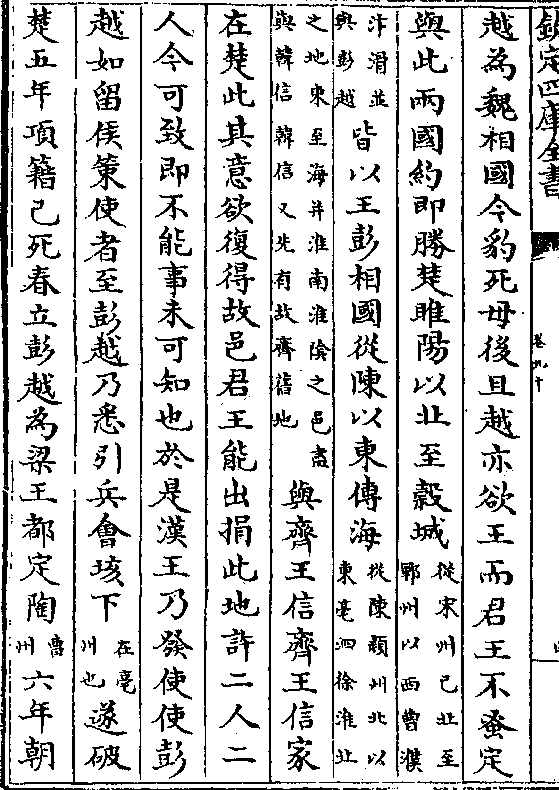 欽定四庫全書
卷九十
越為魏相國今豹死毋後且越亦欲王而君王不蚤定
與此兩國約即勝楚睢陽以北至穀城從宋州已北至鄆州以西曹濮
汴滑並與彭越皆以王彭相國從陳以東傅海從陳潁州北以東亳泗徐淮北
之地東至海并淮南淮陰之邑盡與韓信韓信又先有故齊舊地與齊王信齊王信家
在楚此其意欲復得故邑君王能出捐此地許二人二
人今可致即不能事未可知也於是漢王乃發使使彭
越如留侯策使者至彭越乃悉引兵會垓下在亳州也遂破
楚五年項籍已死春立彭越為梁王都定陶曹州六年朝